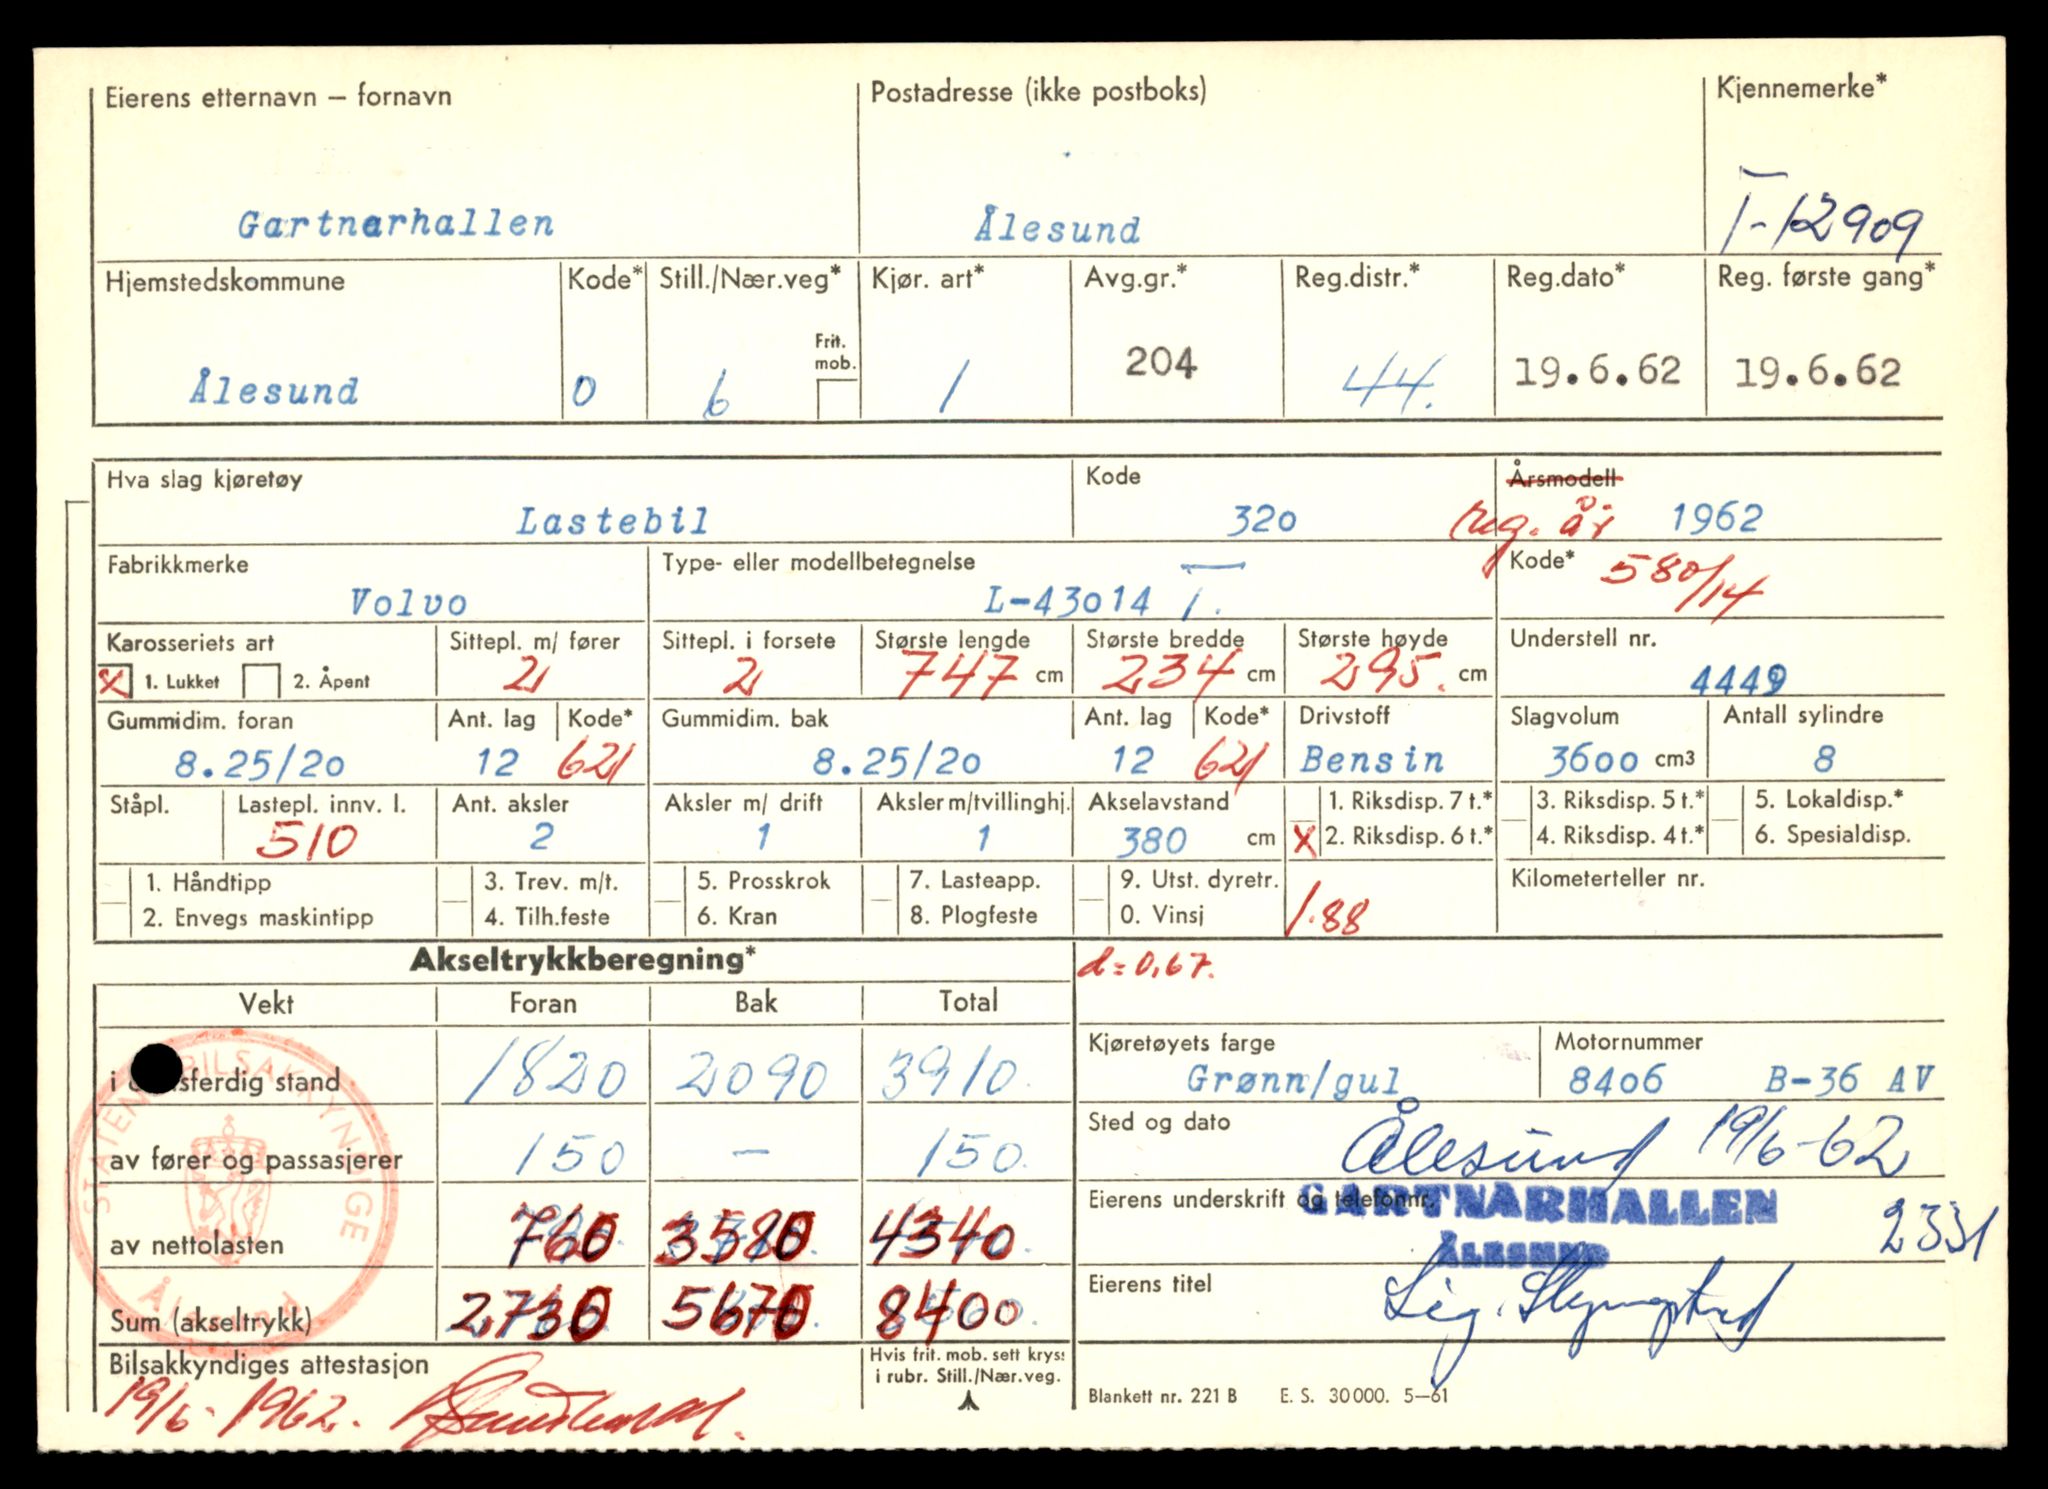 Eierens etternavn – fornavn Postadresse (ikke postboks) Kjennemerke*
Gartnarhallen Ålesund T-12909
Hjemstedskommune Kode* Still./Nær.veg* Kjør. art* Avg.gr.* Reg.distr.* Reg.dato* Reg. første gang*
Frit. mob.
Ålesund 0 6 1 204 44. 19.6.62 19.6.62
Hva slag kjøretøy Kode Årsmodell
Lastebil 320 reg. år 1962
Fabrikkmerke Type- eller modellbetegnelse Kode* 580/14
Volvo L-43014 T.
Karosseriets art Sittepl. m/ fører Sittepl. i forsete Største lengde Største bredde Største høyde Understell nr.
x 1. Lukket 2. Åpent 2 2 747 cm 234 cm 295. cm 4449
Gummidim. foran Ant. lag Kode* Gummidim. bak Ant. lag Kode* Drivstoff Slagvolum Antall sylindre
8.25/20 12 621 8.25/20 12 621 Bensin 3600 cm3 8
Ståpl. Lastepl. innv. l. Ant. aksler Aksler m/ drift Aksler m/tvillinghj. Akselavstand 1. Riksdisp. 7 t.* 3. Riksdisp. 5 t.* 5. Lokaldisp.*
510 2 1 1 380 cm x 2. Riksdisp. 6 t.* 4. Riksdisp. 4 t.* 6. Spesialdisp.
1. Håndtipp 3. Trev. m/t. 5. Prosskrok 7. Lasteapp. 9. Utst. dyretr. Kilometerteller nr.
2. Envegs maskintipp 4. Tilh.feste 6. Kran 8. Plogfeste 0. Vinsj 1.88
Akseltrykkberegning* d=0,67.
Vekt Foran Bak Total
Kjøretøyets farge Motornummer
i sferdig stand 1820 2090 3910. Grønn/gul 8406 B-36 AV
Sted og dato Ålesund 19/6-62
av fører og passasjerer 150 – 150.
Eierens underskrift og telefonnr. GARTNARHALLEN 2331
ÅLESUND
av nettolasten 760 3580 4340
Eierens titel Sig.
Sum (akseltrykk) 2730 5670 8400
STATENS BILSAKKYNDIGE
Ålesund
Bilsakkyndiges attestasjon Hvis frit. mob. sett kryss
i rubr. Still./Nær.veg.
19/6-1962.
Blankett nr. 221 B E. S. 30 000. 5–61